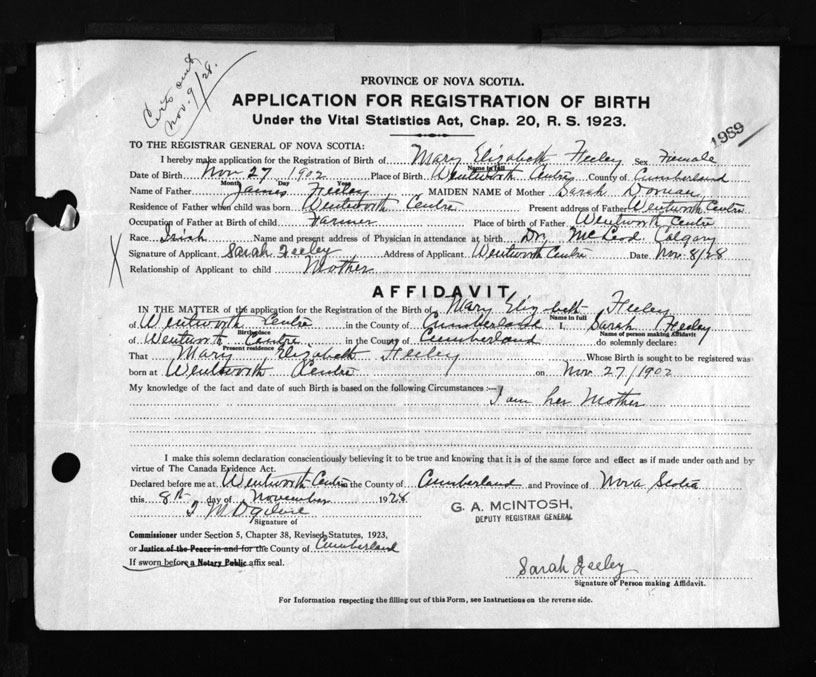 Nov. 9/28.
PROVINCE OF NOVA SCOTIA.
APPLICATION FOR REGISTRATION OF BIRTH
Under the Vital Statistics Act, Chap. 20, R. S. 1923.
1989
TO THE REGISTRAR GENERAL OF NOVA SCOTIA:
I hereby make application for the Registration of Birth of Mary Elizabeth Feeley Sex Female
Name in full
Date of Birth Nov 27 1902 Place of Birth Wentworth Centre County of Cumberland
Month Day Year
Name of Father James Feeley MAIDEN NAME of Mother Sarah Doman
Residence of Father when child was born Wentworth Centre Present address of Father Wentworth Centre
Occupation of Father at Birth of child Farmer Place of birth of Father Wentworth Centre
Race Irish Name and present address of Physician in attendance at birth Dr. McLeod Calgary
X Signature of Applicant Sarah Feeley Address of Applicant Wentworth Centre Date Nov. 8/28
Relationship of Applicant to child Mother
AFFIDAVIT
IN THE MATTER of the application for the Registration of the Birth of Mary Elizabeth Feeley
Name in full
of Wentworth Centre in the County of Cumberland I, Sarah Feeley
Birthplace Name of person making Affidavit
of Wentworth Centre in the County of Cumberland do solemnly declare:
Present residence
That Mary Elizabeth Feeley Whose Birth is sought to be registered was
born at Wentworth Centre on Nov 27/1902
My knowledge of the fact and date of such Birth is based on the following Circumstances:—
I am her Mother
I make this solemn declaration conscientiously believing it to be true and knowing that it is of the same force and effect as if made under oath and by
virtue of The Canada Evidence Act.
Declared before me at Wentworth Centre in the County of Cumberland and Province of Nova Scotia
this 8th day of November 1928
G. A. McINTOSH,
DEPUTY REGISTRAR GENERAL
M Ogilvie
Signature of
Commissioner under Section 5, Chapter 38, Revised Statutes, 1923,
or Justice of the Peace in and for the County of Cumberland
If sworn before a Notary Public affix seal.
Sarah Feeley
Signature of Person making Affidavit.
For Information respecting the filling out of this Form, see Instructions on the reverse side.